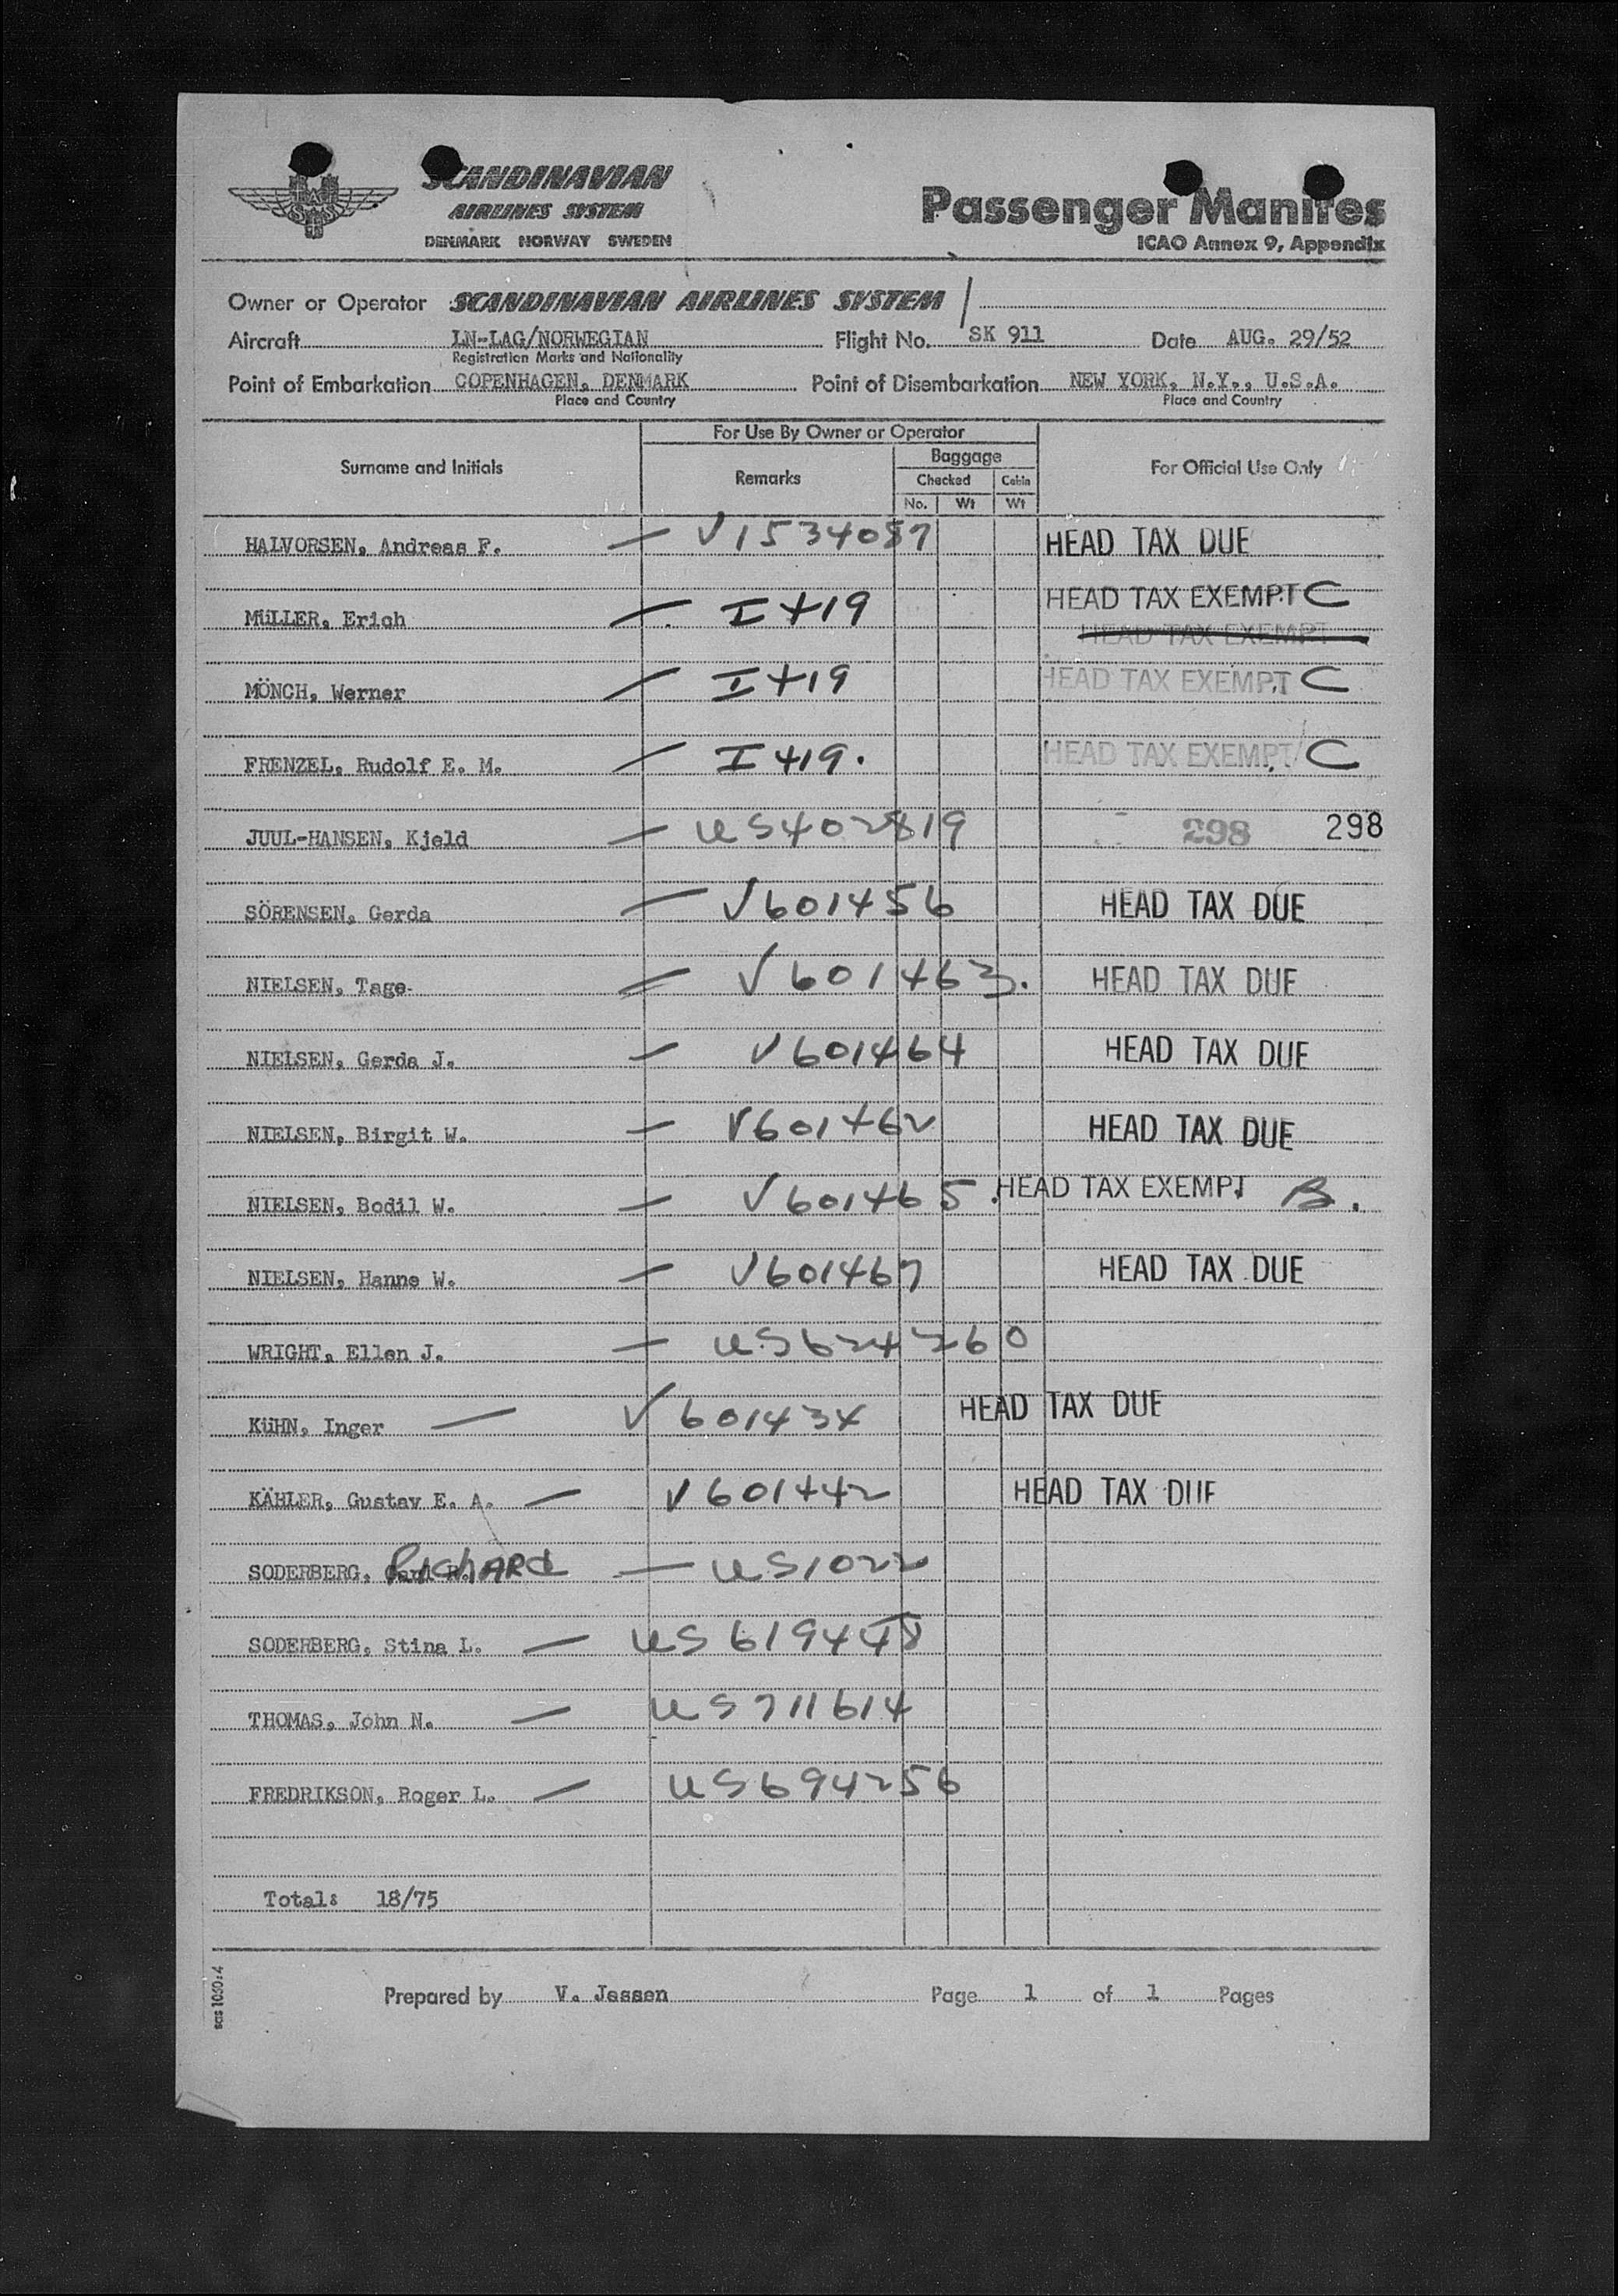 SCANDINAVIAN
AIRLINES SYSTEM
DENMARK NORWAY SWEDEN
Passenger Manifes
ICAO Annex 9, Appendix
Owner or Operator SCANDINAVIAN AIRLINES SYSTEM
Aircraft LN-LAG/NORWEGIAN Flight No. SK 911 Date AUG. 29/52
Registration Marks and Nationality
Point of Embarkation COPENHAGEN, DENMARK Point of Disembarkation NEW YORK, N.Y., U.S.A.
Place and Country Place and Country
For Use By Owner or Operator
Surname and Initials Remarks Baggage For Official Use Only
Checked Cabin
No. Wt Wt
HALVORSEN, Andreas F. — V1534087 HEAD TAX DUE
HEAD TAX EXEMPT C
MüLLER, Erich — I 419 HEAD TAX EXEMPT
MÖNCH, Werner — I 419 HEAD TAX EXEMPT C
FRENZEL, Rudolf E. M. — I 419. HEAD TAX EXEMPT C
JUUL-HANSEN, Kjeld — US402819 298 298
SÖRENSEN, Gerda — V601456 HEAD TAX DUE
NIELSEN, Tage — V601463. HEAD TAX DUE
NIELSEN, Gerda J. — V601464 HEAD TAX DUE
NIELSEN, Birgit W. — V601462 HEAD TAX DUE
NIELSEN, Bodil W. — V601465. HEAD TAX EXEMPT B.
NIELSEN, Hanne W. — V601467 HEAD TAX DUE
WRIGHT, Ellen J. — US624260
KüHN, Inger — V601434 HEAD TAX DUE
KÄHLER, Gustav E. A. — V601442 HEAD TAX DUE
SODERBERG, RichARd — US1022
SODERBERG, Stina L. — US619448
THOMAS, John N. — US711614
FREDRIKSON, Roger L. — US694256
Total: 18/75
sas 1030:4
Prepared by V. Jessen Page 1 of 1 Pages